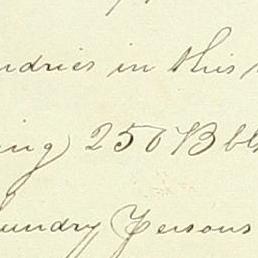 ndries in this
ing 250 Bbls
undry Persons